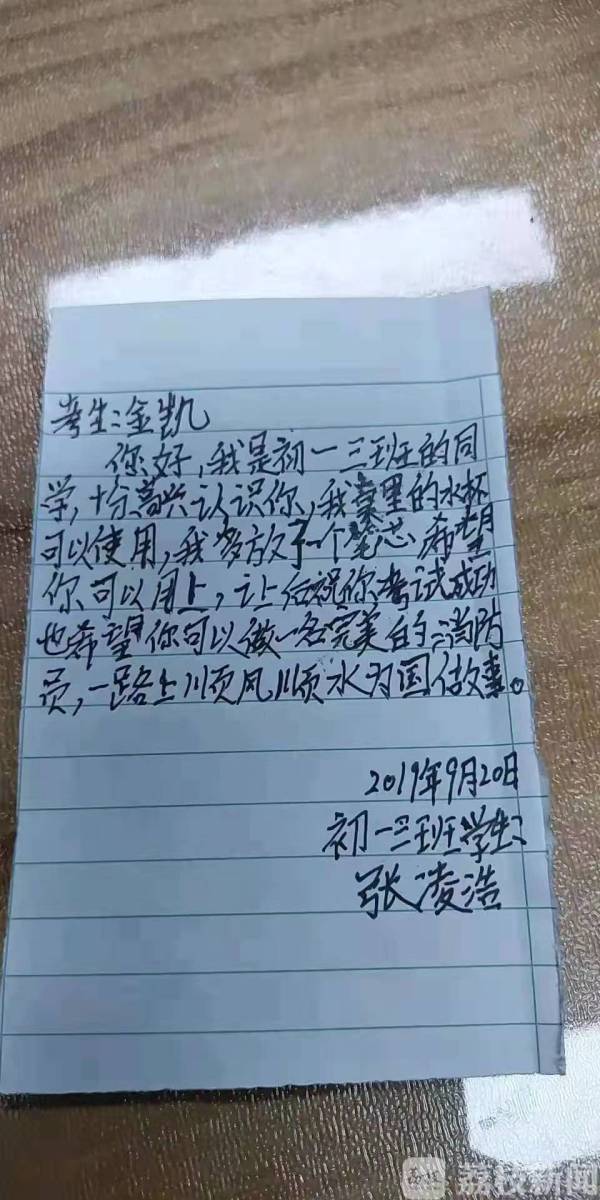 考生:金凯
你好,我是初一三班的同
学,十分高兴认识你,我桌里的水杯
可以使用,我多放了一个笔芯希望
你可以用上,让 祝你考试成功
也希望你可以做一名完美的消防
员,一路上顺风顺水为国做事。
2019年9月20日
初一三班学生:
张凌浩
荔枝新闻